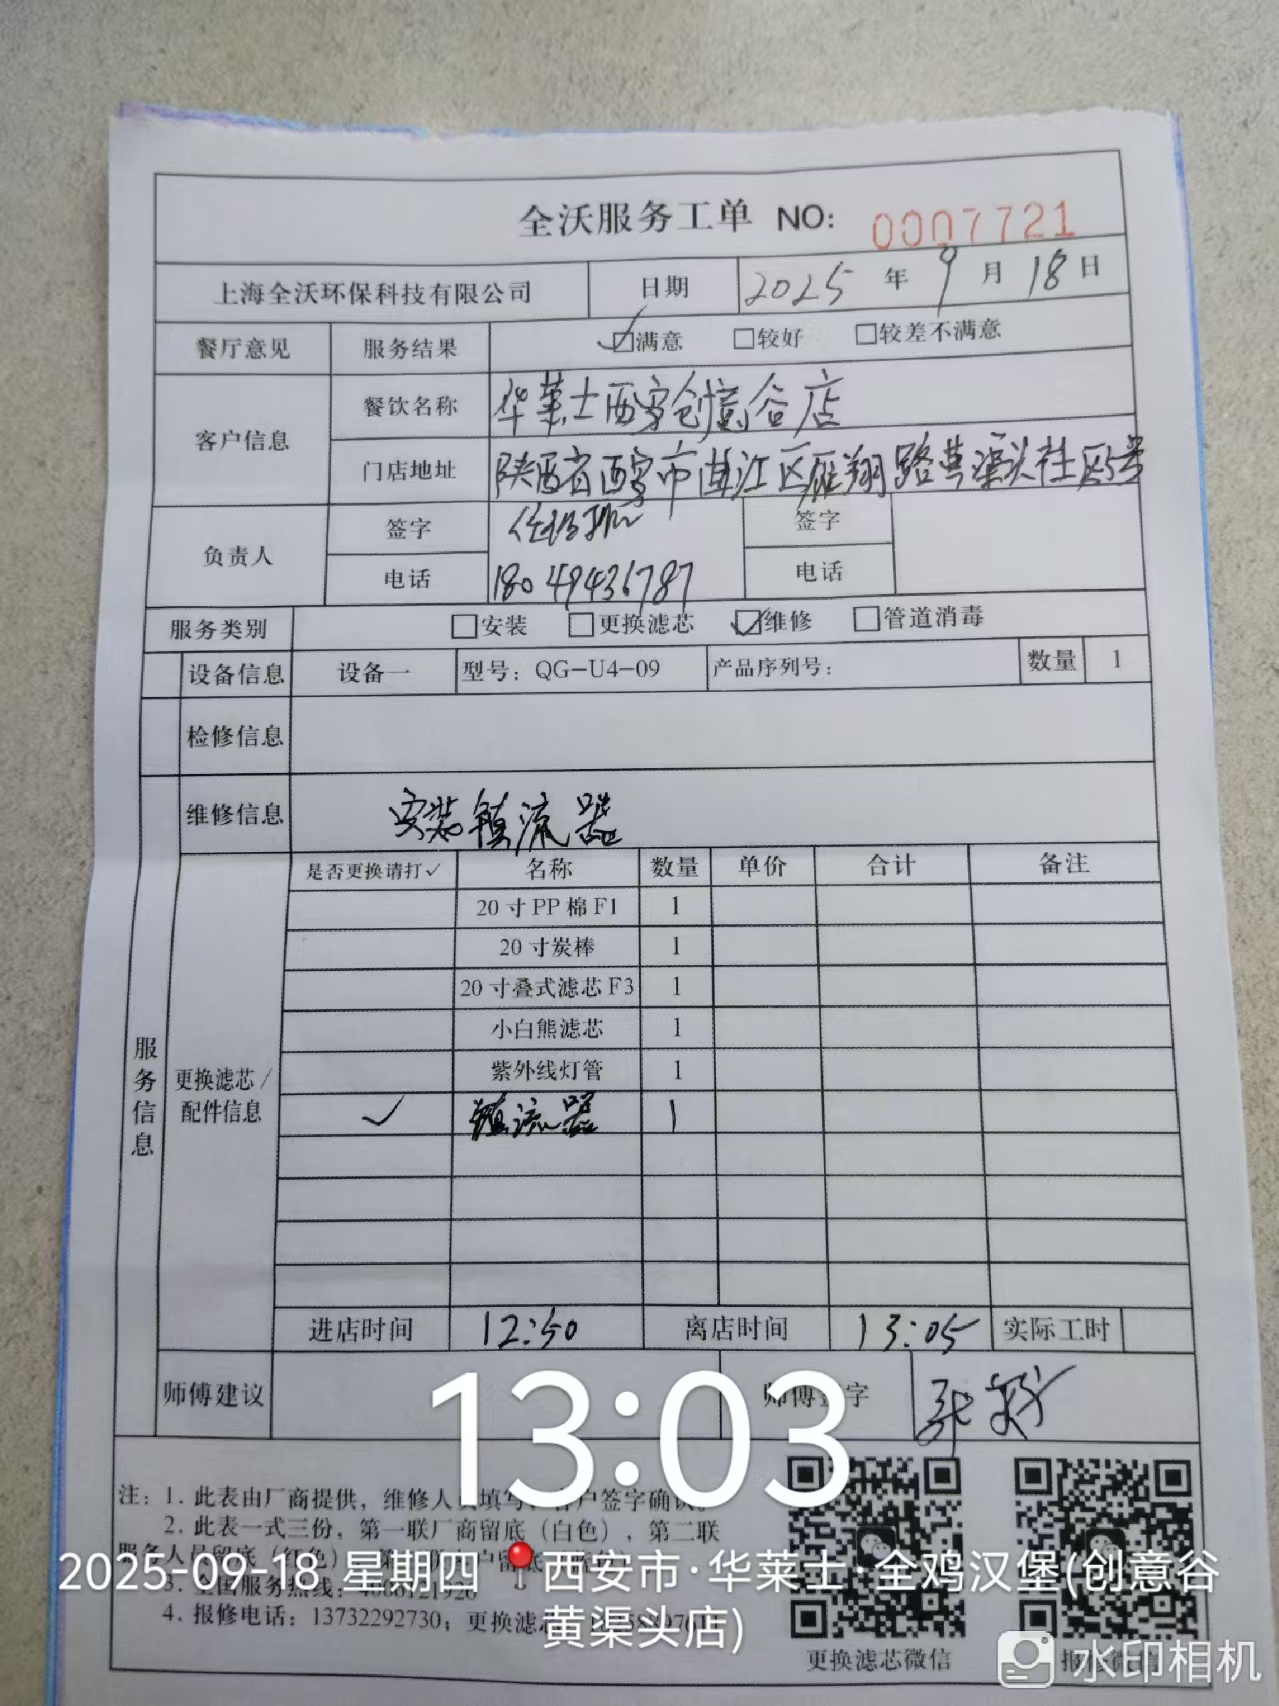 全沃服务工单 NO: 0007721
上海全沃环保科技有限公司 日期 2025 年 9 月 18 日
餐厅意见 服务结果 ☑满意 □较好 □较差不满意
客户信息 餐饮名称 华莱士西安创意谷店
门店地址 陕西省西安市曲江区雁翔路黄渠头社区5号
负责人 签字 签字
电话 18049436787 电话
服务类别 □安装 □更换滤芯 ☑维修 □管道消毒
设备信息 设备一 型号：QG-U4-09 产品序列号： 数量 1
检修信息
维修信息 安装镇流器
服务信息
更换滤芯/配件信息
是否更换请打✓ 名称 数量 单价 合计 备注
20寸PP棉F1 1
20寸炭棒 1
20寸叠式滤芯F3 1
小白熊滤芯 1
紫外线灯管 1
✓ 镇流器 1
进店时间 12:50 离店时间 13:05 实际工时
师傅建议 师傅签字
13:03
注：1. 此表由厂商提供，维修人员填写，客户签字确认。
2. 此表一式三份，第一联厂商留底（白色），第二联
服务人员留底（红色）
3. 全国服务热线：
4. 报修电话：13732292730；更换滤芯
2025-09-18 星期四 西安市·华莱士·全鸡汉堡(创意谷
黄渠头店)
更换滤芯微信
水印相机